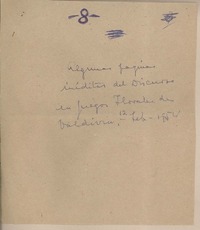 -8-
Algunas paginas
inéditas del Discurso
en Juegos Florales de
Valdivia, - Feb -